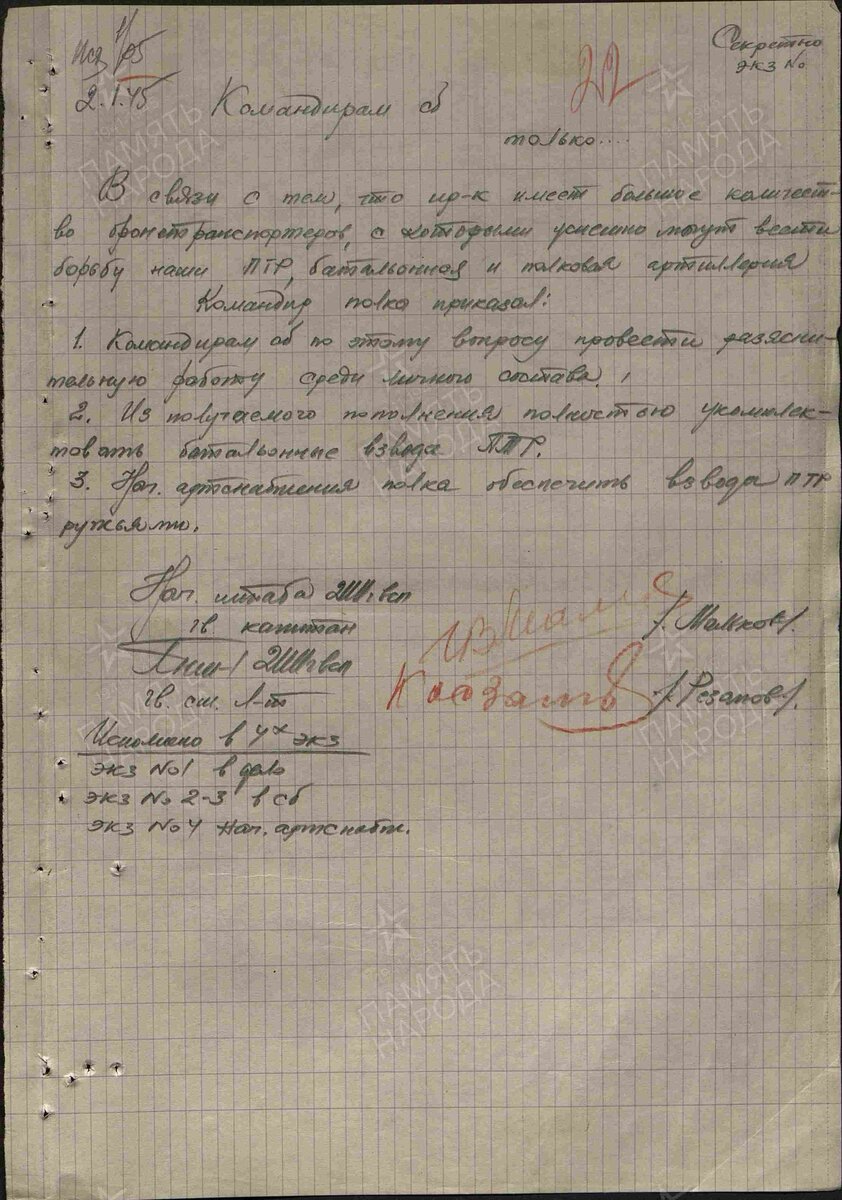 Исх 1/05
2.1.45
Секретно
экз №
22
Командирам сб
только....
В связи с тем, что пр-к имеет большое количест-
во бронетранспортеров, с которыми успешно могут вести
борьбу наши ПТР, батальонная и полковая артиллерия
Командир полка приказал:
1. Командирам сб по этому вопросу провести разясни-
тельную работу среди личного состава.
2. Из получаемого пополнения полностью укомплек-
товать батальонные взвода ПТР.
3. Нач. артснабжения полка обеспечить взвода ПТР
ружьями.
Нач. штаба гвсп
гв. капитан /.Мальков/.
гвсп
гв. ст. л-т /.Резапов/.
Исполнено в 4х экз
экз №1 в дело
экз №2-3 в сб
экз №4 нач. артснабж.
ПАМЯТЬ
НАРОДА